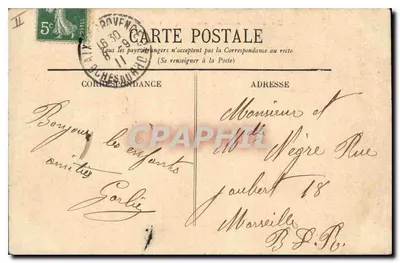 II
5c
AIX-EN-PROVENCE
16 30
11
BCHES DU RHONE
CARTE POSTALE
Tous les pays étrangers n'acceptent pas la Correspondance au recto
(Se renseigner à la Poste)
CORRESPONDANCE
ADRESSE
Bonjour les enfants
amitiés
Monsieur et
Mme Nègre Rue
Joubert 18
Marseille
B.D.R.
CPAPHIL.com